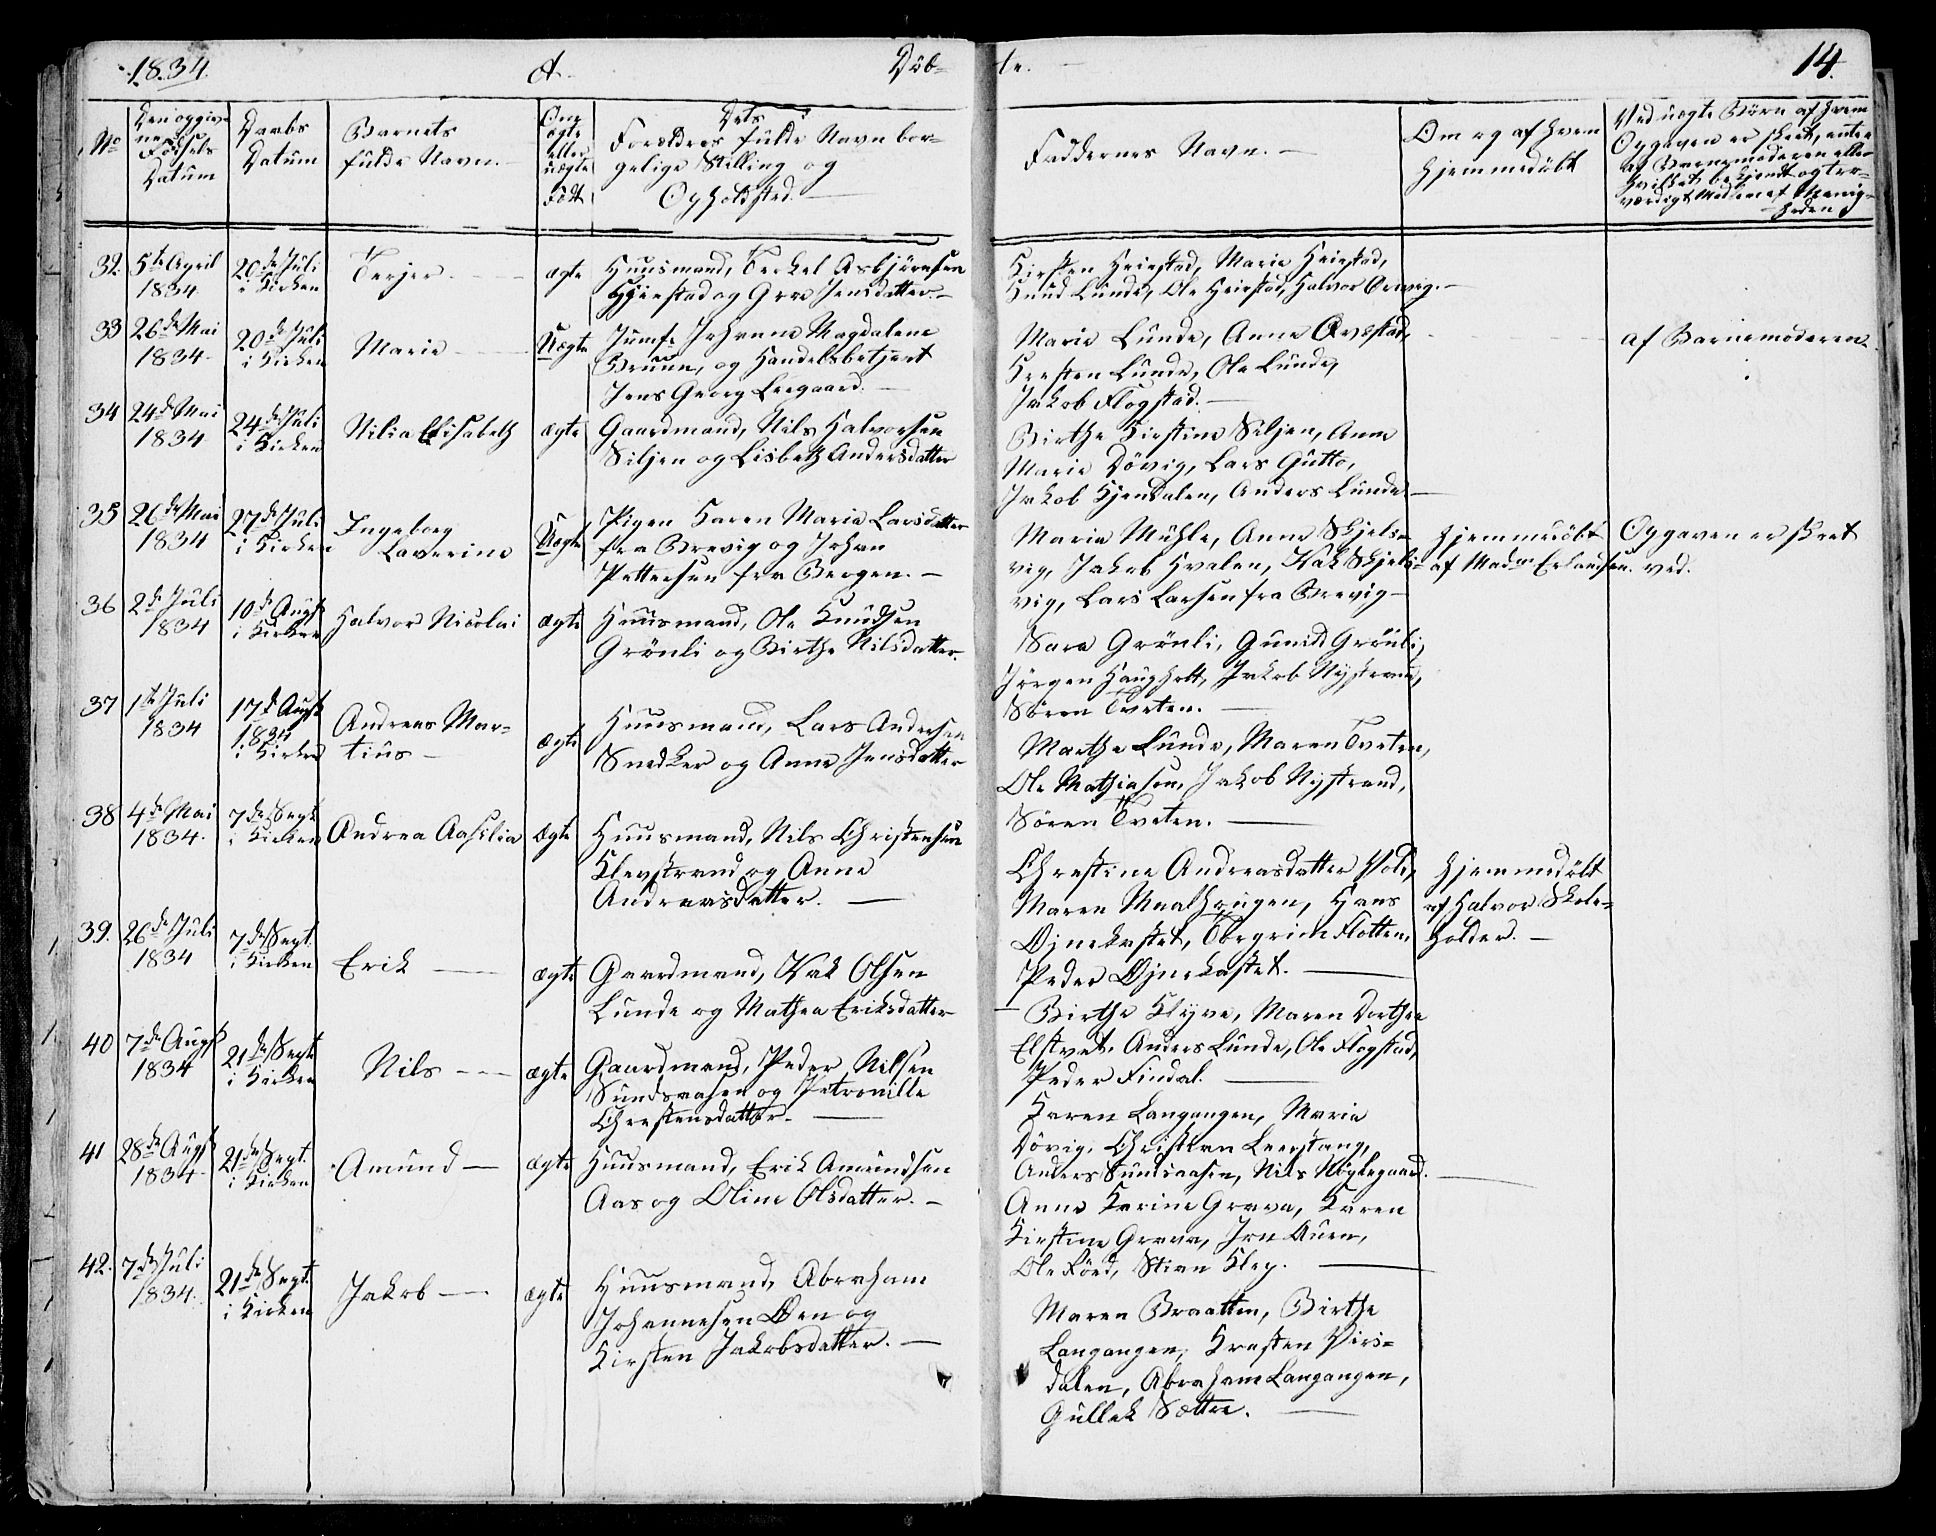 1834.
A.
Döb-
te.
14.
No
Den opgiv-
ne
Fødsels
Datum
Daabs
Datum
Barnets
fulde Navn.
Om
ægte
eller
uægte
Født
Dets
Forældres fulde Navn bor-
gelige Stilling og
Opholdsted.
Faddernes Navn.
Om og af hvem
hjemmedöbt
Ved uægte Børn af hvem
Opgaven er skeet, enten
af Barnemoderen eller
hvilket bekjendt og tro-
værdigt Medlem af Menig-
heden
32.
5te April
1834
20de Juli
i Kirken
Terjer
ægte
Huusmand, Terkel Asbjörnsen
Heiestad og Gro Jensdatter.
Kirsten Heiestad, Marie Heiestad,
Knud Lunde, Ole Heiestad, Halvor
33
26de Mai
1834
20de Juli
i Kirken
Marie
Uægte
Jumfr Johanne Magdalene
Bruun, og Handelsbetjent
Jens Georg Leegaard.
Marie Lunde, Anne
Kresten Lunde, Ole Lunde,
Jakob Flogstad.
af Barnemoderen.
34
24de Mai
1834
24de Juli
i Kirken
Nilia Elisabeth
ægte
Gaardmand, Nils Halvorsen
Siljen og Lisbeth Andersdatter
Birthe Kirstine Siljen, Anne
Marie Dövig, Lars Gutto,
Jakob Kjendalen, Anders Lunde
35
26de Mai
1834
27de Juli
i Kirken
Ingeborg
Laverine
Uægte
Pigen Karen Maria Larsdatter
fra Brevig og Johan
Pettersen fra Bergen.
Maria Mühle, Anne Skjels-
vig, Jakob Hvalen, Isak Skjels-
vig, Lars Larsen fra Brevig
hjemmedöbt
af Madm Erlandsen.
Opgaven er skeet
ved.
36
2de Juli
1834
10de Augst
i Kirken
Halvor Nicolai
ægte
Huusmand, Ole Knudsen
Grönli og Birthe Nilsdatter.
Sara Grönli, Gunild Grönli,
Jörgen Haugholt, Jakob Nystrand,
Sören Tveten.
37
1te Juli
1834
17de Augst
1834
i Kirken
Andreas Mar-
tius
ægte
Huusmand, Lars Andersen
Snedker og Anne Jensdatter
Marthe Lunde, Maren Tveten,
Ole Mathiasen, Jakob Nystrand,
Sören Tveten.
38
4de Mai
1834.
7de Sept
i Kirken
Andrea Aaslia
ægte
Huusmand, Nils Christensen
Klevstrand og Anne
Andreasdatter.
Chrestine Andreasdatter
Maren Hans
Øjnekastet, Flotten,
Peder Øjnekastet.
hjemmedöbt
af Halvor Skole-
holder.
39.
26de Juli
1834
7de Sept.
i Kirken
Erik
ægte
Gaardmand, Isak Olsen
Lunde og Mathea Eriksdatter
Birthe Klyve, Maren Dorthea
Elstvet, Anders Lunde, Ole Flogstad,
Peder Findal.
40
7de Augst
1834
21de Sept
i Kirken
Nils
ægte
Gaardmand, Peder Nilsen
Sundsaasen og Petronille
Chrestensdatter.
Karen Langangen, Maria
Dövig, Christian Leerstang,
Anders Sundsaasen, Nils Nöglegaard.
41
28de Augst
1834
21de Sept.
i Kirken
Amund
ægte
Huusmand, Erik Amundsen
Aas og Oline Olsdatter.
Anne Karine Grava, Karen
Kirstine Grava, Jon Auen,
Ole Röed, Stian Klep.
42.
7de Juli
1834.
21de Sept.
i Kirken
Jakob
ægte
Huusmand, Abraham
Johannesen Øen og
Kirsten Jakobsdatter.
Maren Braatten, Birthe
Langangen, Kresten
dalen, Abraham Langangen,
Gullek Sættre.